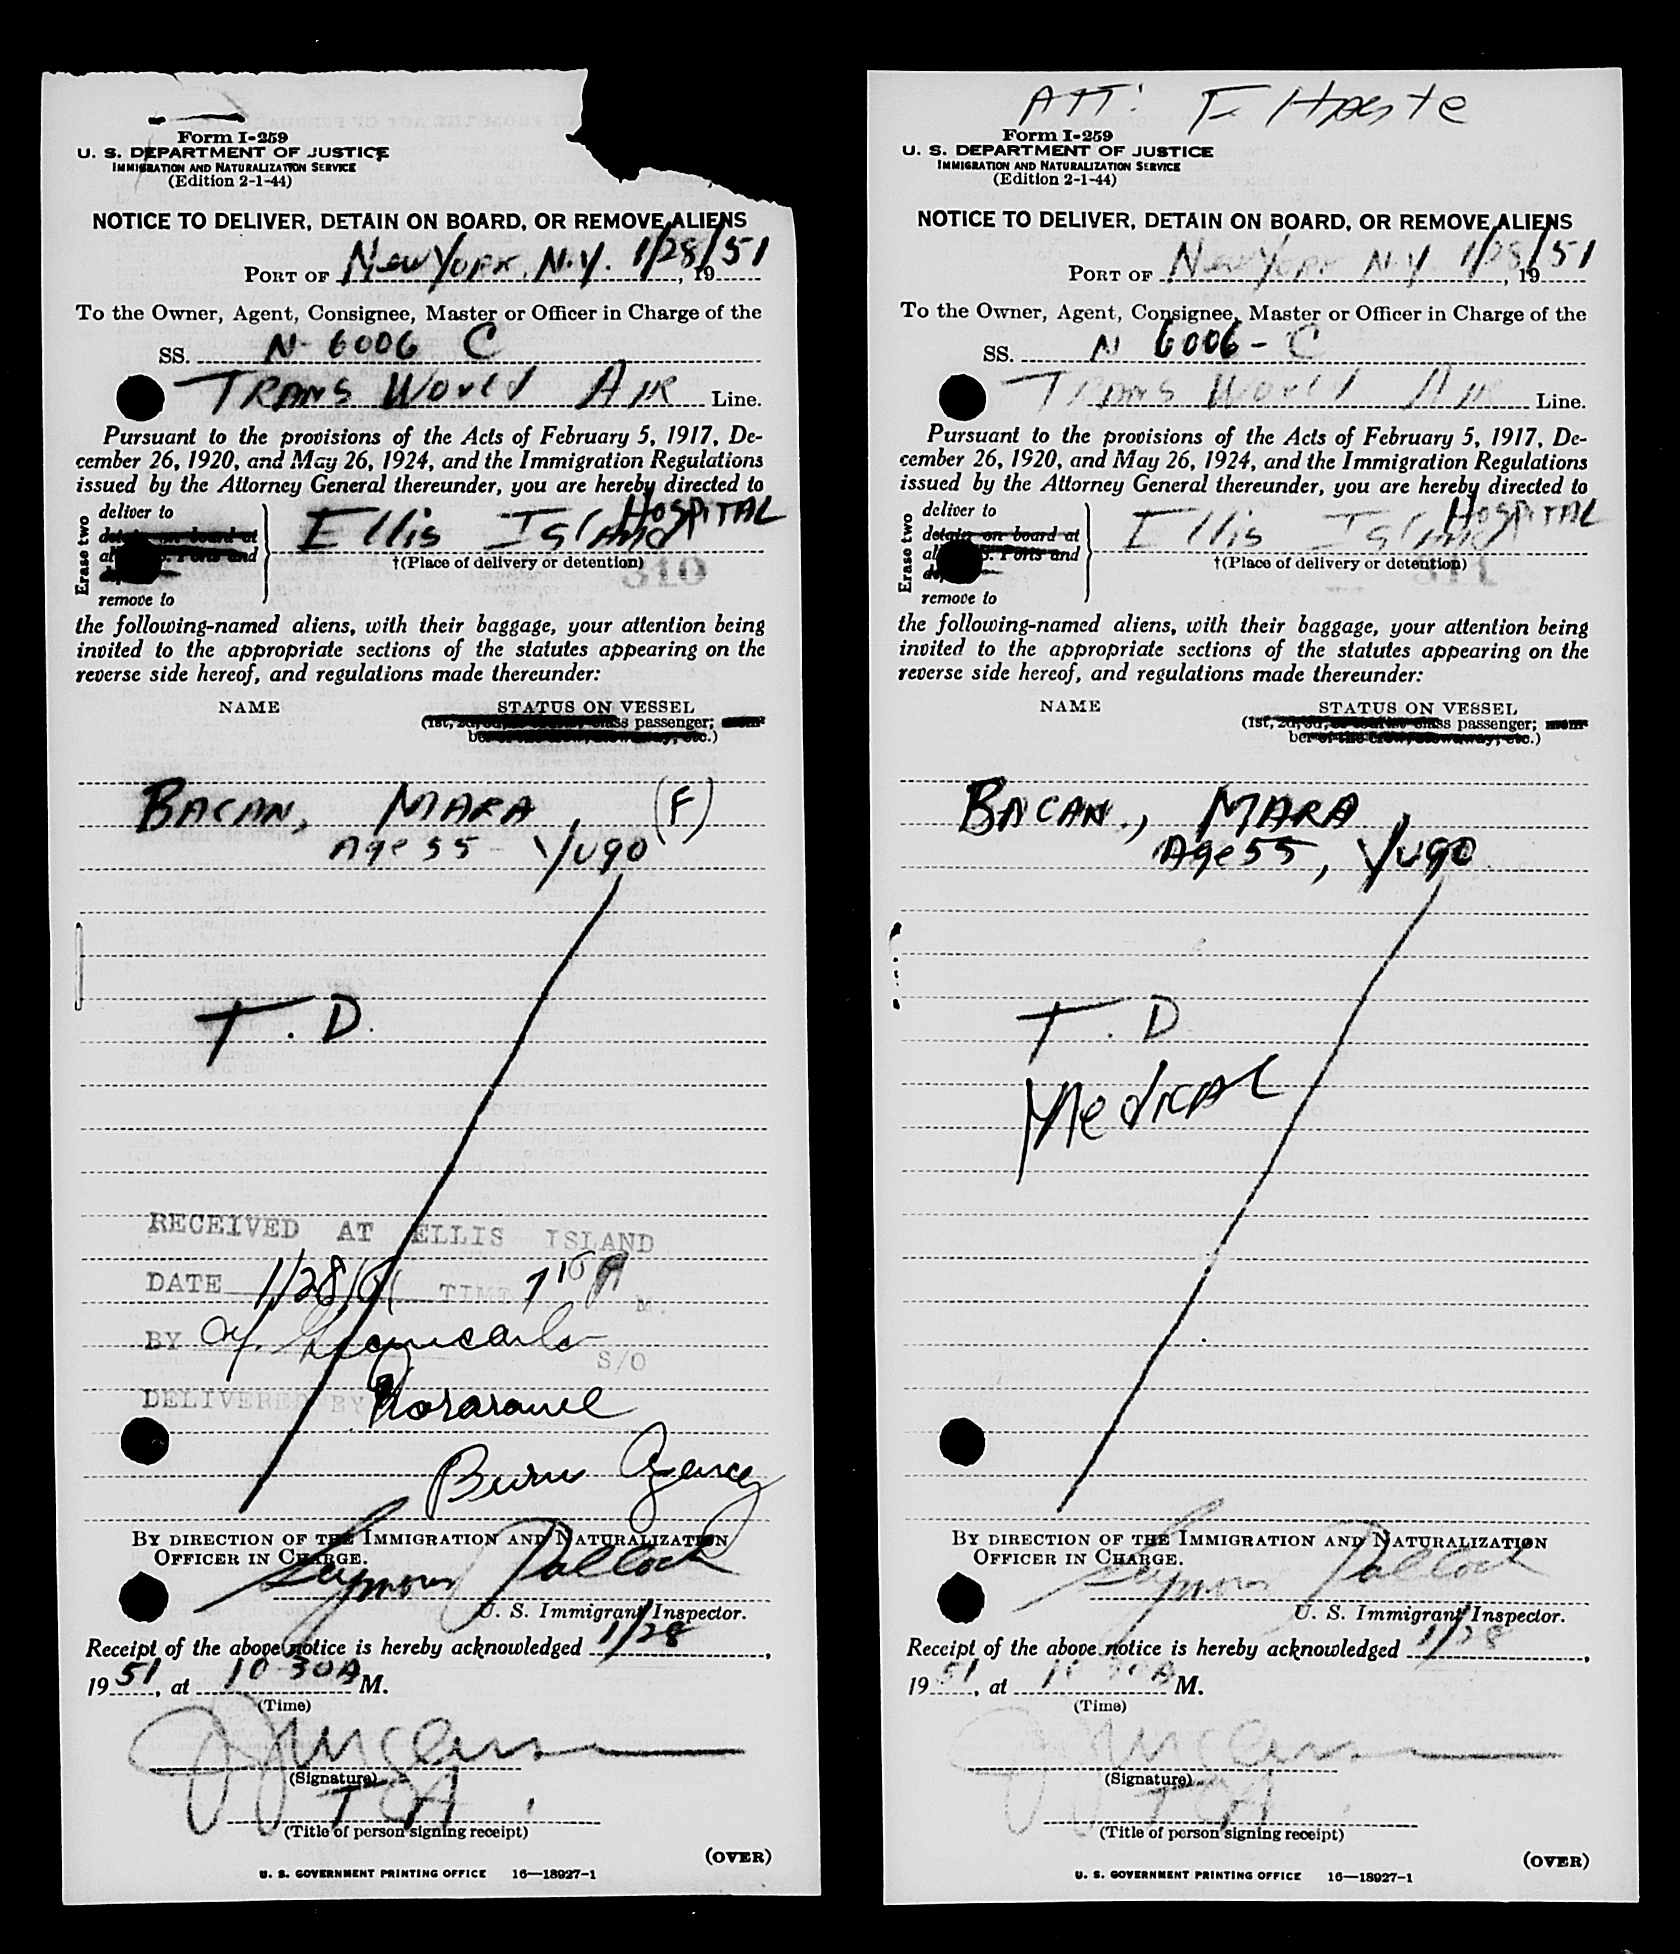 Form I-259
U. S. DEPARTMENT OF JUSTICE
IMMIGRATION AND NATURALIZATION SERVICE
(Edition 2-1-44)
NOTICE TO DELIVER, DETAIN ON BOARD, OR REMOVE ALIENS
PORT OF New York, N.Y. 1/28/51, 19
To the Owner, Agent, Consignee, Master or Officer in Charge of the
SS. N-6006 C
TRANS World AIR Line.
Pursuant to the provisions of the Acts of February 5, 1917, De-
cember 26, 1920, and May 26, 1924, and the Immigration Regulations
issued by the Attorney General thereunder, you are hereby directed to
Erase two
deliver to
detain on board at
al S. Ports and
remove to
Ellis Island HOSPITAL
†(Place of delivery or detention)
310
the following-named aliens, with their baggage, your attention being
invited to the appropriate sections of the statutes appearing on the
reverse side hereof, and regulations made thereunder:
NAME STATUS ON VESSEL
(1st, 2d, 3d, or tourist class passenger; mem-
ber of the crew, stowaway, etc.)
BACAN, MARA (F)
Age 55 - Yugo
T. D.
RECEIVED AT ELLIS ISLAND
DATE 1/28/51 TIME M.
BY S/O
DELIVERED BY
Agency
BY DIRECTION OF THE IMMIGRATION AND NATURALIZATION
OFFICER IN CHARGE.
Seymour Pallock
U. S. Immigrant Inspector.
Receipt of the above notice is hereby acknowledged 1/28,
19 51, at 10 30A M.
(Time)
(Signature)
(Title of person signing receipt)
(OVER)
U. S. GOVERNMENT PRINTING OFFICE 16—18927-1
ATT: F. Haste
Form I-259
U. S. DEPARTMENT OF JUSTICE
IMMIGRATION AND NATURALIZATION SERVICE
(Edition 2-1-44)
NOTICE TO DELIVER, DETAIN ON BOARD, OR REMOVE ALIENS
PORT OF New York N.Y. 1/28/51, 19
To the Owner, Agent, Consignee, Master or Officer in Charge of the
SS. N 6006-C
TRANS World AIR Line.
Pursuant to the provisions of the Acts of February 5, 1917, De-
cember 26, 1920, and May 26, 1924, and the Immigration Regulations
issued by the Attorney General thereunder, you are hereby directed to
Erase two
deliver to
detain on board at
al S. Ports and
remove to
Ellis Island HOSPITAL
†(Place of delivery or detention)
311
the following-named aliens, with their baggage, your attention being
invited to the appropriate sections of the statutes appearing on the
reverse side hereof, and regulations made thereunder:
NAME STATUS ON VESSEL
(1st, 2d, 3d, or tourist class passenger; mem-
ber of the crew, stowaway, etc.)
BACAN, MARA,
Age 55, Yugo
T. D
Medical
BY DIRECTION OF THE IMMIGRATION AND NATURALIZATION
OFFICER IN CHARGE.
Seymour Pallock
U. S. Immigrant Inspector.
Receipt of the above notice is hereby acknowledged 1/28,
19 51, at 10 30A M.
(Time)
(Signature)
(Title of person signing receipt)
(OVER)
U. S. GOVERNMENT PRINTING OFFICE 16—18927-1